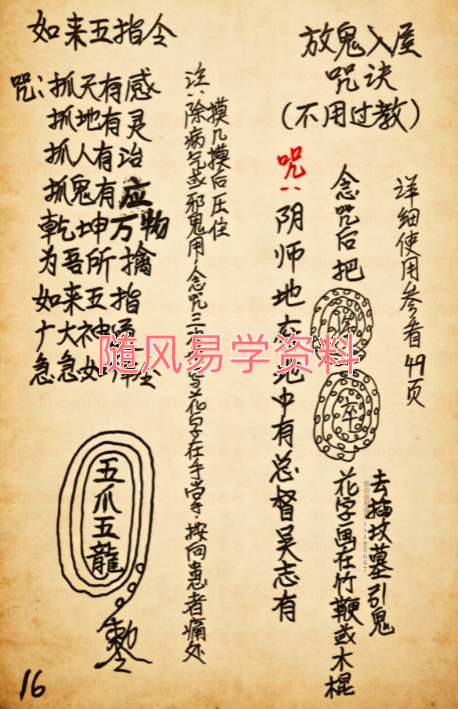 放鬼入屋
咒诀
(不用过教)
详细使用参看49页
念咒后把
花字画在竹鞭或木棍
去描坟墓引鬼
咒:阴师地在地中有总督吴志有
摸几摸后压住
注:除病气或邪鬼用,念咒三
花字在手掌,按向患者痛处
如来五指令
咒:抓天有感
抓地有灵
抓人有治
抓鬼有应
乾坤万物
为吾所擒
如来五指
广大神通
急急如律令
五爪五龍
敕令
随风易学资料
16